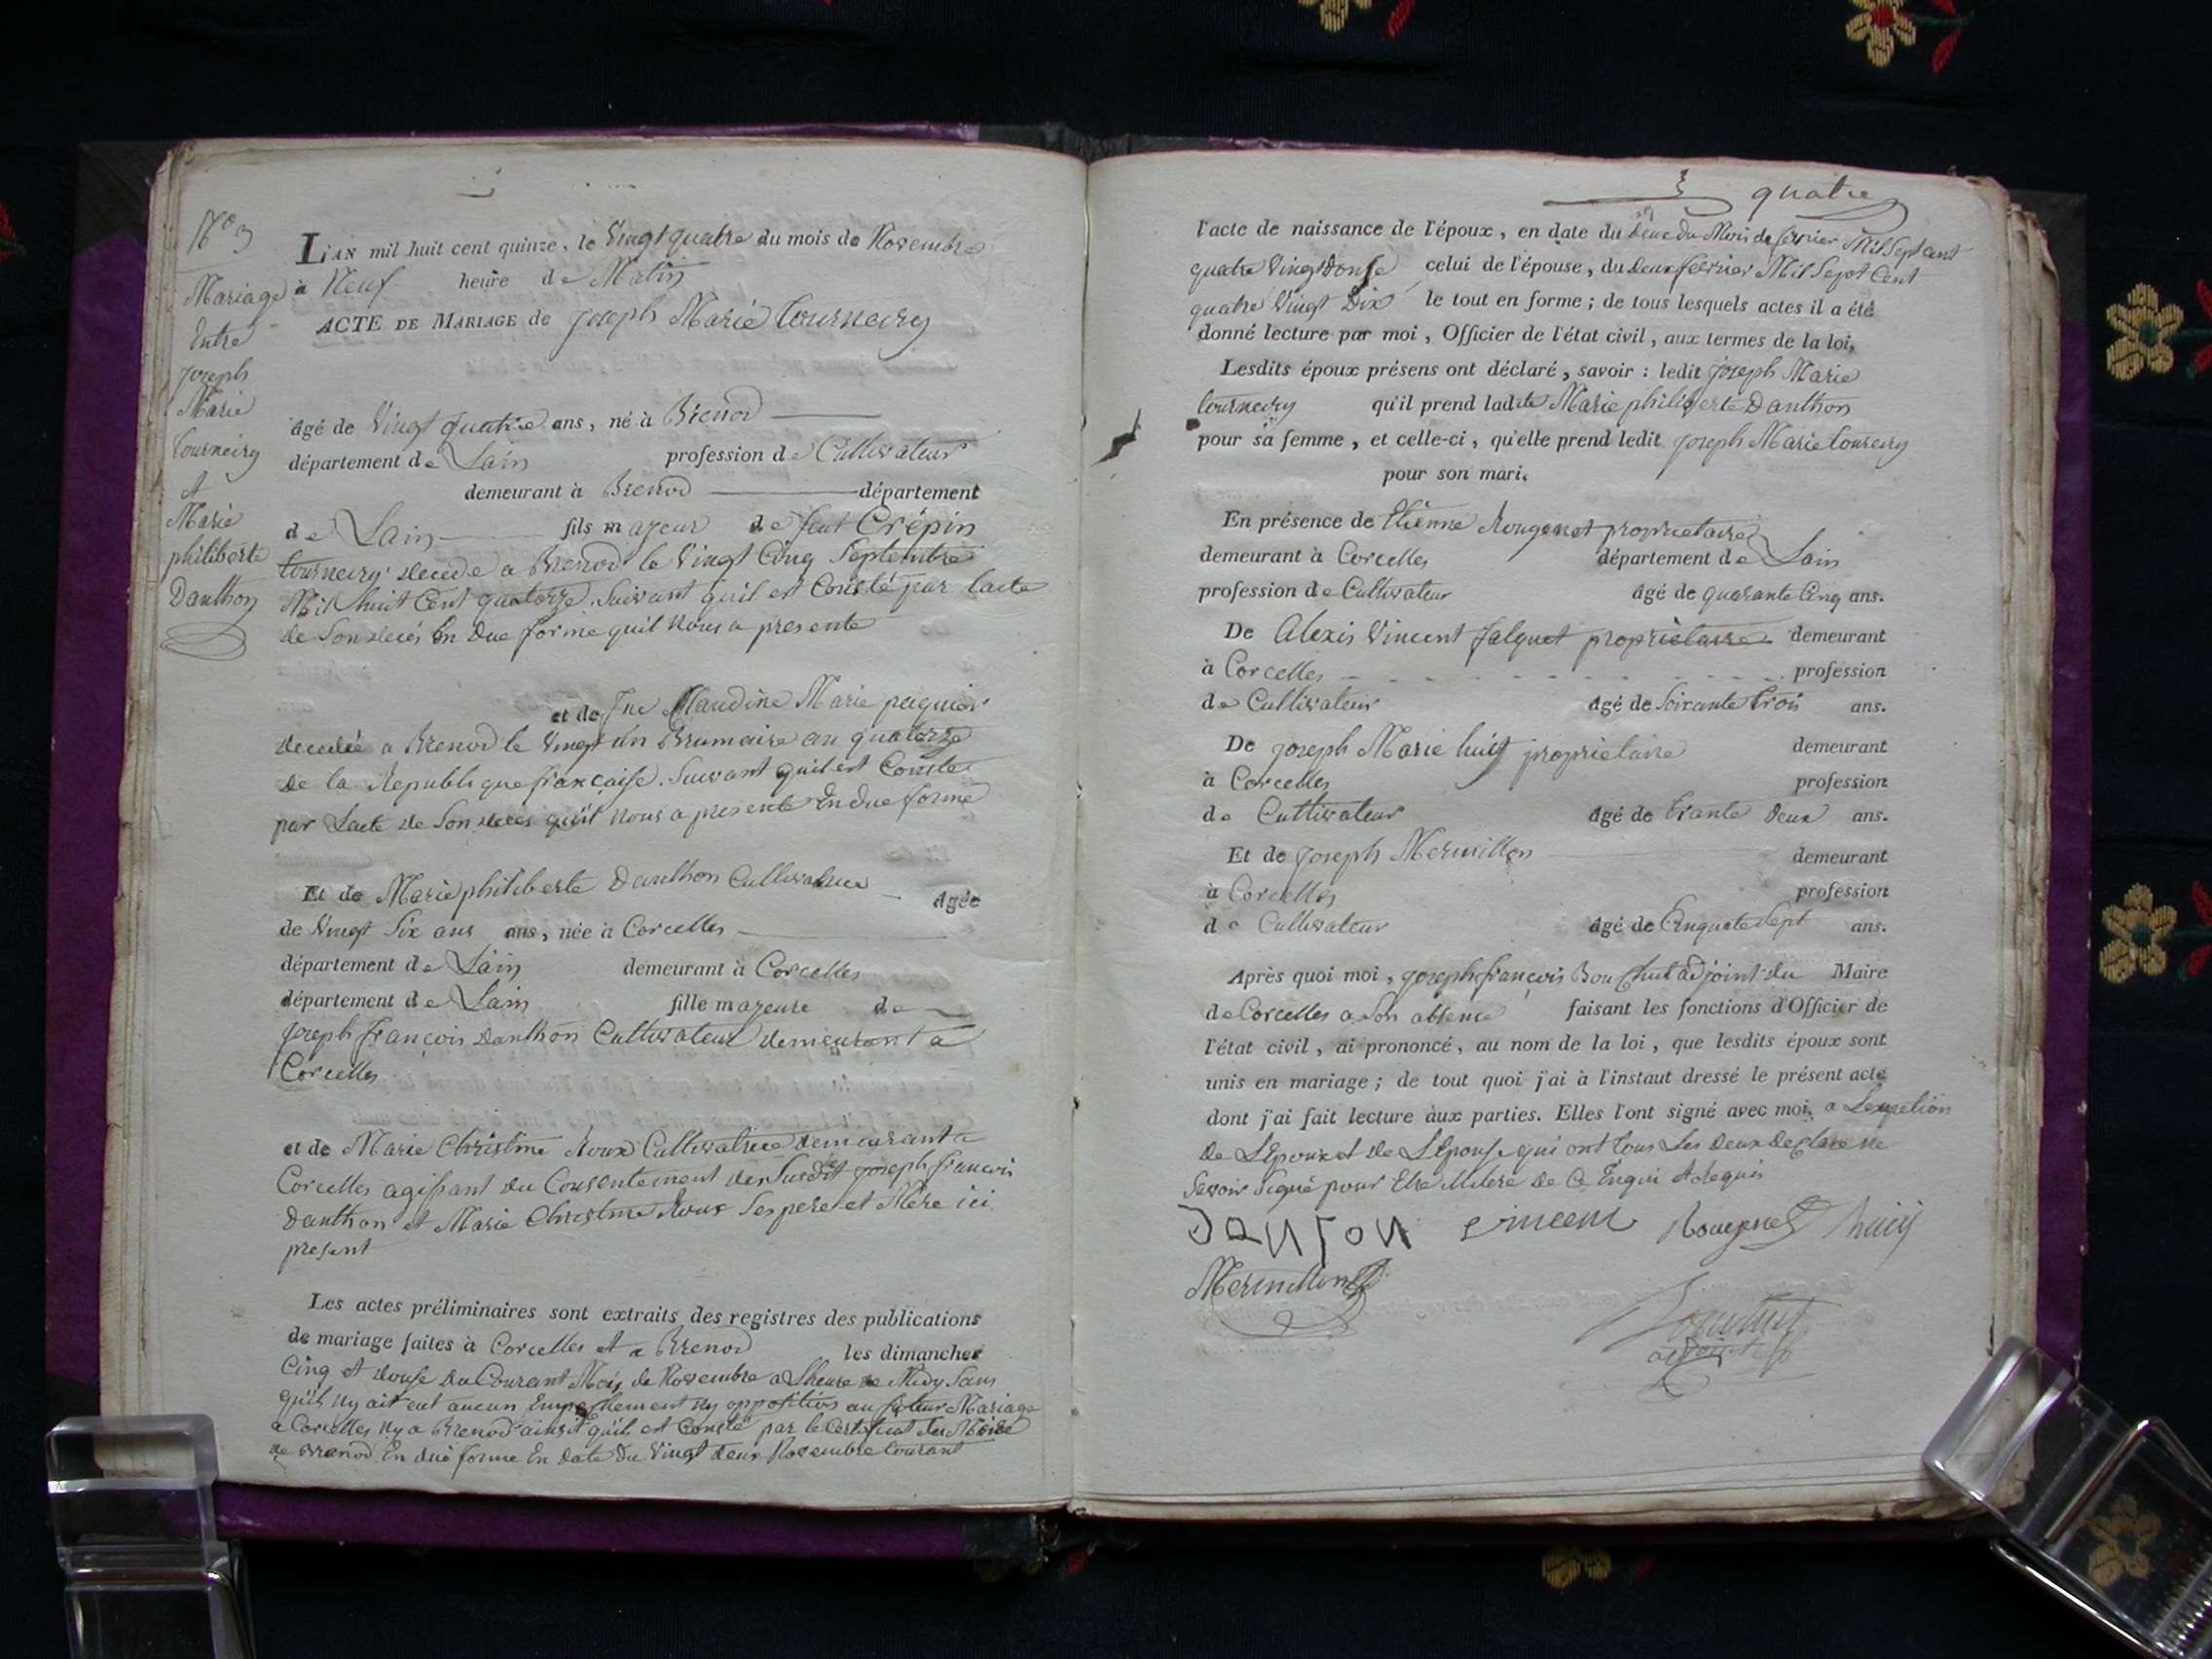 N° 3
Mariage
Entre
joseph
Marie
tourneiry
et
Marie
philiberte
Danthon
L'AN mil huit cent quinze, le Vingt quatre du mois de Novembre
à Neuf heure de Matin
ACTE DE MARIAGE de joseph Marie tourneiry
âgé de Vingt quatre ans, né à Brenod
département de Lain profession de Cultivateur
demeurant à Brenod département
de Lain fils majeur de feut Crépin
tourneiry decede a Brenod le Vingt Cinq Septembre
Mil huit Cent quatorze. Suivant quil est Consté par lacte
de Son decés En Due forme quil Nous a presente
et de Claudine Marie paquier
decedée a Brenod le Vingt un Brumaire an quatorze
de la Republique française. Suivant quil est Conste
par Lacte de Son deces quil Nous a presente En due forme
Et de Marie philiberte Danthon Cultivatrice âgée
de Vingt Six ans ans, née à Corcelles
département de Lain demeurant à Corcelles
département de Lain fille majeure de
joseph françois Danthon Cultivateur demeurant a
Corcelles
et de Marie Christine Roux Cultivatrice demeurant a
Corcelles agissant du Consentement des Susdit joseph francois
Danthon et Marie Christine Roux Ses pere et Mere ici
present
Les actes préliminaires sont extraits des registres des publications
de mariage faites à Corcelles et a Brenod les dimanches
Cinq et douse du Courant Mois de Novembre a Lheure de Midy Sans
quil ny ait eut aucun Empechement ny opposition au futur Mariage
a Corcelles ny a Brenod ainsi quil est Consté par le Certificat du Maire
de Brenod En due forme En date du Vingt deux Novembre Courant
quatre
l'acte de naissance de l'époux, en date du deux du Mois de fevrier Mil Sept Cent
quatre Vingt Donse celui de l'épouse, du deux fevrier Mil Sept Cent
quatre Vingt Dix le tout en forme; de tous lesquels actes il a été
donné lecture par moi, Officier de l'état civil, aux termes de la loi,
Lesdits époux présens ont déclaré, savoir: ledit joseph Marie
tourneiry qu'il prend ladite Marie philiberte Danthon
pour sa femme, et celle-ci, qu'elle prend ledit joseph Marie
pour son mari.
En présence de Etienne Rougemot proprietaire
demeurant à Corcelles département de Lain
profession de Cultivateur âgé de quarante Cinq ans.
De Alexis Vincent falquet proprietaire demeurant
à Corcelles profession
de Cultivateur âgé de Soixante trois ans.
De joseph Marie huit proprietaire demeurant
à Corcelles profession
de Cultivateur âgé de trante deux ans.
Et de joseph Mermillon demeurant
à Corcelles profession
de Cultivateur âgé de Cinquate Sept ans.
Après quoi moi, joseph françois adjoint du Maire
de Corcelles a Son absence faisant les fonctions d'Officier de
l'état civil, ai prononcé, au nom de la loi, que lesdits époux sont
unis en mariage; de tout quoi j'ai à l'instaut dressé le présent acte
dont j'ai fait lecture aux parties. Elles l'ont signé avec moi, a
de LEpoux et de LEpouse qui ont tous Les deux declare ne
Savoir Signé pour de Ce Enqui et Requis
Danton vincent Rougemot huit
Mermillon
adjoint